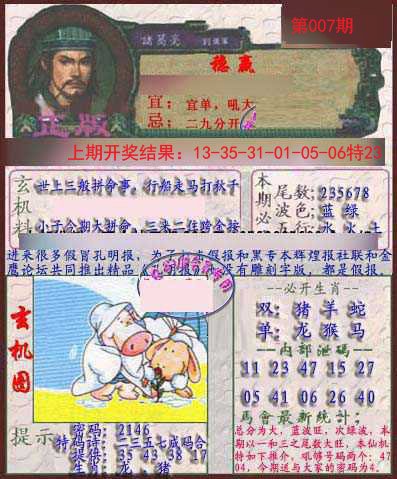 第007期
諸葛亮 刘伯温
稳赢
宜：宜单，吼大
忌：二九分开
正版
上期开奖结果：13-35-31-01-05-06特23
玄机料
世上三般拼命事，行船走马打秋千
本期必
尾数;235678
波色;蓝 绿
五行;水 火 土
进来很多假冒孔明报，为了
假报和黑专本辉煌报社联和金
鹰论坛共同推出精品
没有雕刻字版，都是假报，
玄机图
--必开生肖--
双:猪羊蛇
单:龙猴马
--内部泄码--
11 23 47 15 27
05 41 06 26 40
馬會最新統計:
总分为大，蓝波旺，次绿波，本
期以一和三之尾数大旺，本仙机
特如下推介，吼够号码两个：47
04，今期送与大家的密码为4.
提示
密码：2146
特码诗：二三五七成码合
提倍：35 43 38 17
生肖：龙、猪